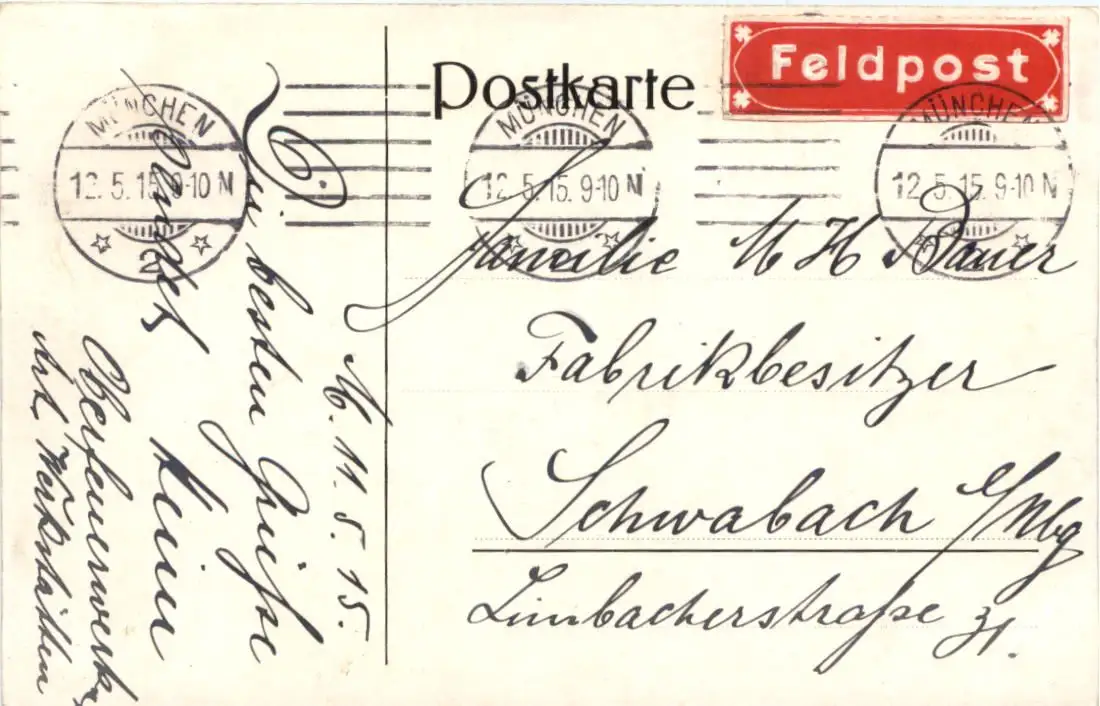 Postkarte
Feldpost
MÜNCHEN
12.5.15.9-10 N
2
MÜNCHEN
12.5.15.9-10 N
MÜNCHEN
12.5.15.9-10 N
Familie M H Bauer
Fabrikbesitzer
Schwabach b/Nbg
Limbacherstraße 31.
M. 11.5.15.
Die besten Grüße
sendet
Oberfeuerwerk
Art. Werkstätten